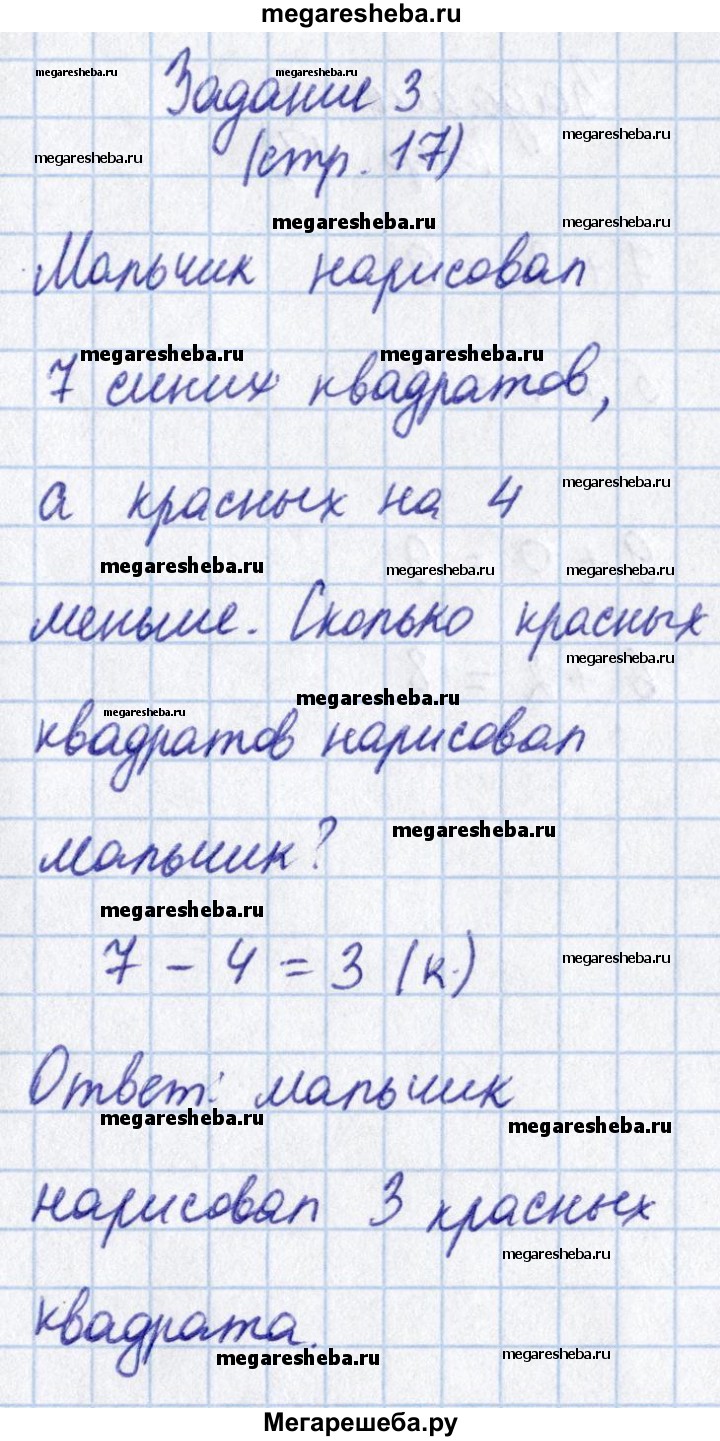 megaresheba.ru
megaresheba.ru megaresheba.ru
Задание 3
megaresheba.ru
megaresheba.ru
(стр. 17)
megaresheba.ru megaresheba.ru
Мальчик нарисовал
megaresheba.ru megaresheba.ru
7 синих квадратов,
megaresheba.ru
а красных на 4
megaresheba.ru megaresheba.ru megaresheba.ru
меньше. Сколько красных
megaresheba.ru
megaresheba.ru megaresheba.ru
квадратов нарисовал
megaresheba.ru
мальчик?
megaresheba.ru
7 - 4 = 3 (к.)
megaresheba.ru
Ответ: мальчик
megaresheba.ru megaresheba.ru
нарисовал 3 красных
megaresheba.ru
квадрата.
megaresheba.ru megaresheba.ru
Мегарешеба.ру